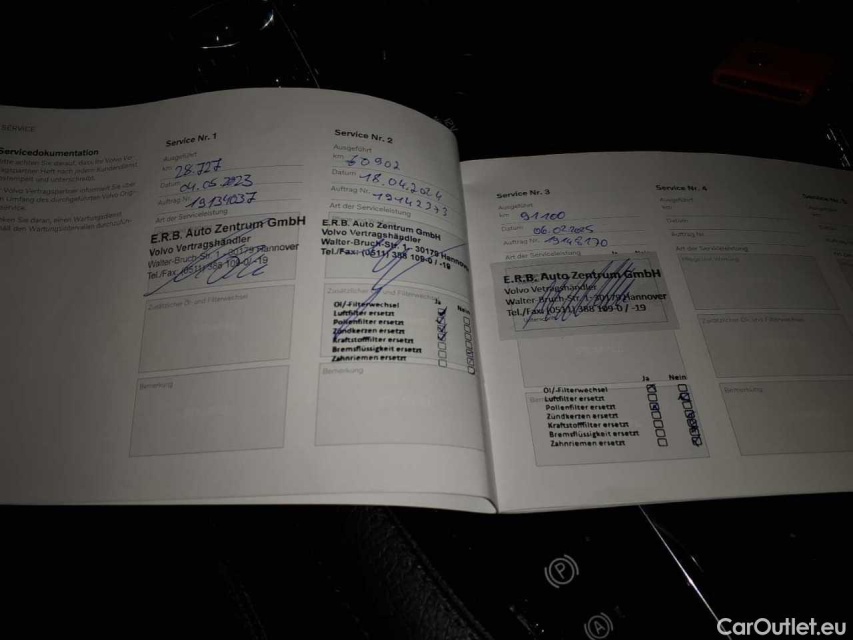 SERVICE
Servicedokumentation
Service Nr. 1
Ausgeführt
km 28.727
Datum 04.05.2023
Auftrag Nr. 19134037
Art der Serviceleistung
E.R.B. Auto Zentrum GmbH
Volvo Vertragshändler
Walter-Bruch-Str. 1 - 30179 Hannover
Tel./Fax: (0511) 388 109-0 / -19
Zusätzliche Öl und Filterwechsel
Bemerkung
Service Nr. 2
Ausgeführt
km 60902
Datum 18.04.2024
Auftrag Nr. 19142373
Art der Serviceleistung
E.R.B. Auto Zentrum GmbH
Volvo Vertragshändler
Walter-Bruch-Str. 1 - 30179 Hannover
Tel./Fax: (0511) 388 109-0 / -19
Ja Nein
Öl-/Filterwechsel
Luftfilter ersetzt
Pollenfilter ersetzt
Zündkerzen ersetzt
Kraftstofffilter ersetzt
Bremsflüssigkeit ersetzt
Zahnriemen ersetzt
Bemerkung
Service Nr. 3
Ausgeführt
km 91100
Datum 06.02.2025
Auftrag Nr. 19148170
Art der Serviceleistung
E.R.B. Auto Zentrum GmbH
Volvo Vertragshändler
Walter-Bruch-Str. 1 - 30179 Hannover
Tel./Fax: (0511) 388 109-0 / -19
Ja Nein
Öl-/Filterwechsel
Luftfilter ersetzt
Pollenfilter ersetzt
Zündkerzen ersetzt
Kraftstofffilter ersetzt
Bremsflüssigkeit ersetzt
Zahnriemen ersetzt
Service Nr. 4
Ausgeführt
km
Datum
Auftrag Nr.
Art der Serviceleistung
Bemerkung
P
A
CarOutlet.eu